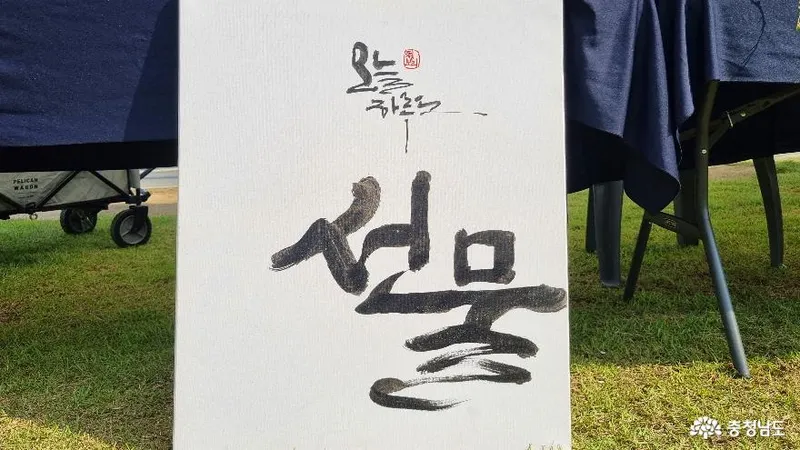 오늘
하루도
선물
PELICAN
WAGON
충청남도